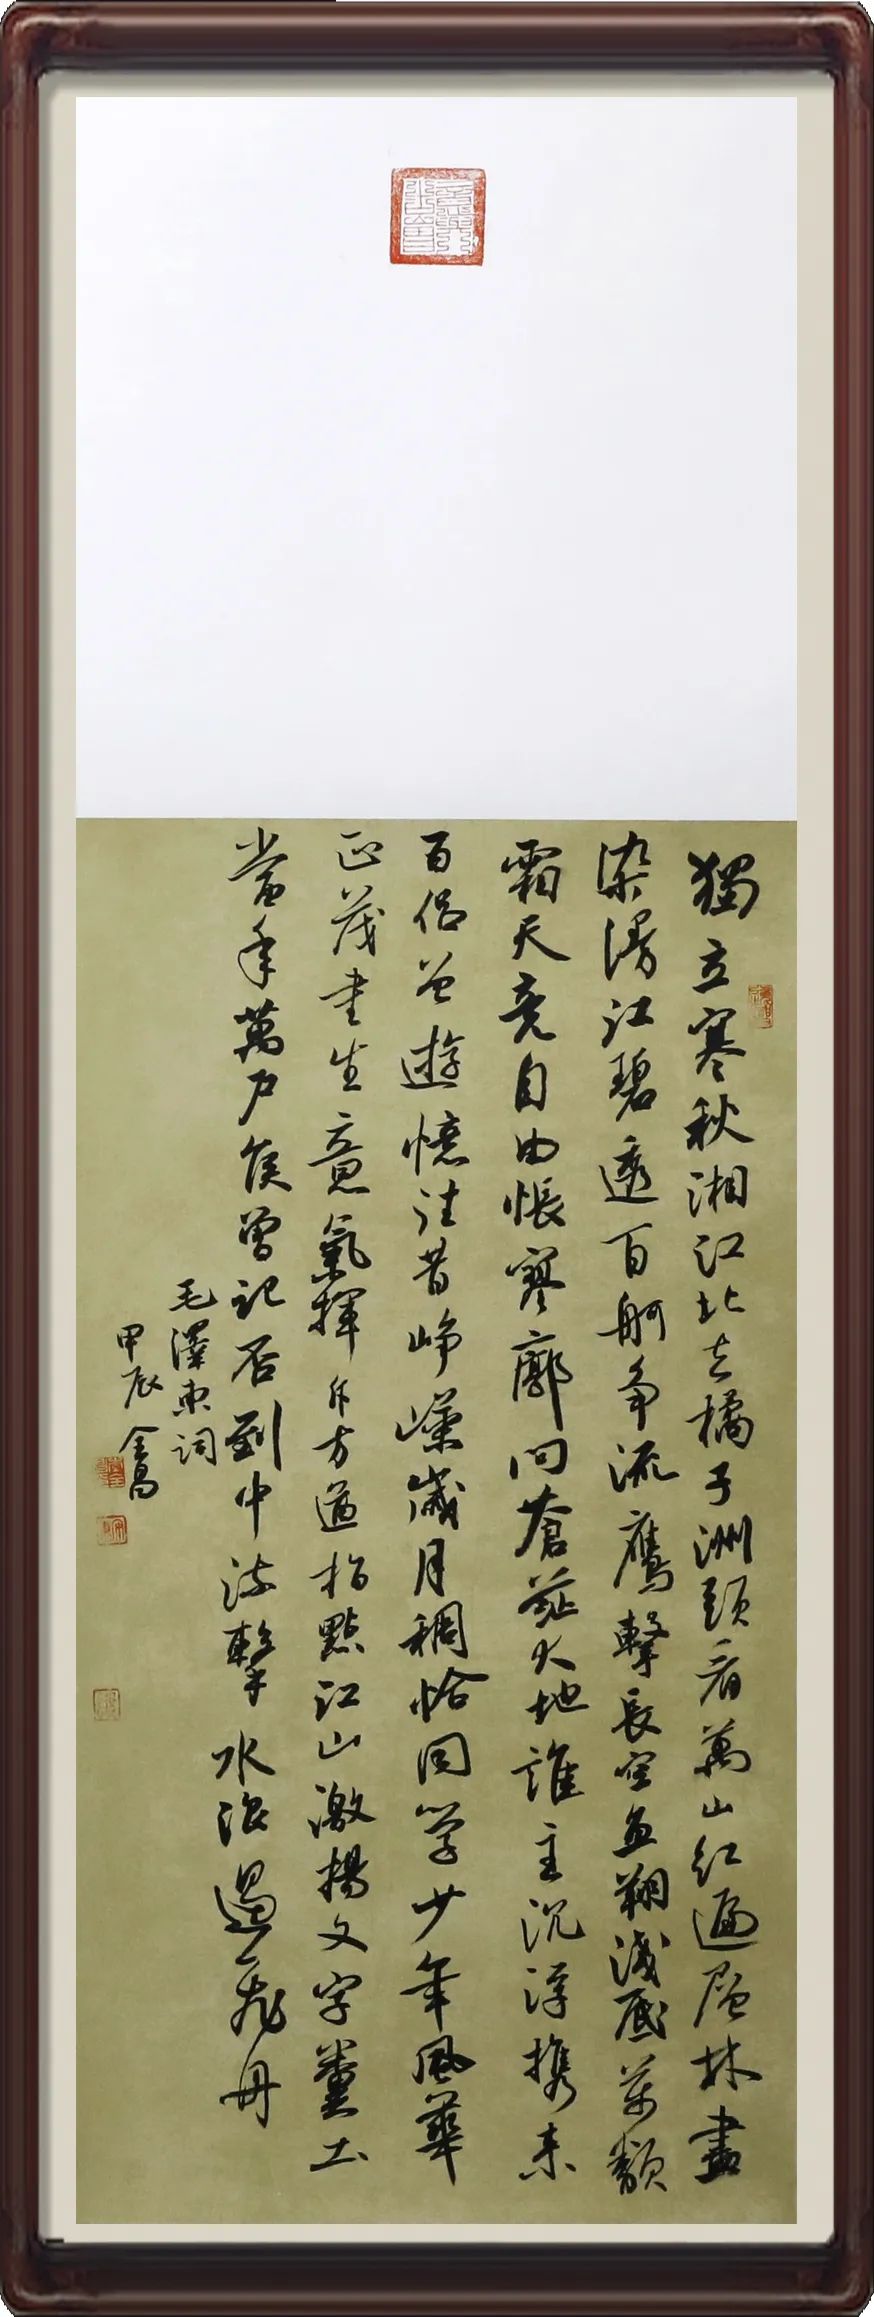 獨立寒秋湘江北去橘子洲頭看萬山紅遍層林盡
染漫江碧透百舸争流鷹擊長空魚翔淺底萬類
霜天竞自由悵寥廓问蒼茫大地誰主沉浮携来
百侣曾遊憶往昔崢嶸歲月稠恰同学少年風華
正茂書生意氣揮斥方遒指點江山激揚文字糞土
當年萬户侯曾記否到中流擊水浪遏飛舟
毛澤東詞
甲辰